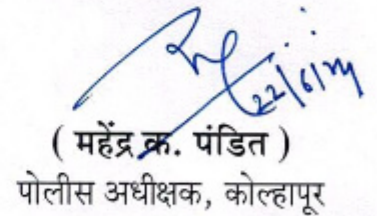 22/6/24
( महेंद्र क. पंडित )
पोलीस अधीक्षक, कोल्हापूर